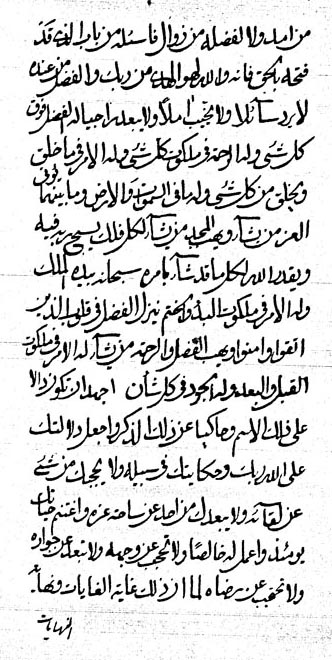 من امله ولا لفضله من زوال فاسئله من باب الذي قد
فتحه بالحق فانه والله لهو الهدى من ربك والفضل من عنده
لا يرد سائلا ولا يخيب املا ولا يبعد راجيا له الفضل فوق
كل شئ وله الرحمة في ملكوت كل شئ وله الامر فيما خلق
ويخلق من كل شئ وله ما في السموات والارض وما بينهما يؤتى
العز من يشاء ويهب المجد من يشاء لكل فلك يسبح به فيه
ويقدر الله لكل ما قد شاء بامره سبحانه بيده الملك
وله الامر في ملكوت البدء والختم ينزل الفضل في قلوب الذين
اتقوا وامنوا ويهب الفضل والرحمة من يشاء له الامر في ملكوت
القبل والبعد وله الجود في كل شأن اجهد ان تكون دالا
على ذلك الاسم وحاكيا عن ذلك الذكر واجعل دلالتك
على الله ربك وحكايتك في سبيله ولا يحجبك من شئ
عن لقائه ولا يبعدك من احد عن ساحة عزه واغتنم
يومئذ واعمل له خالصا ولا تحجب عن وجهه ولا تبعد عن جواره
ولا تحجب عن رضاه لما ان ذلك غاية الغايات ونهاية
النهايات